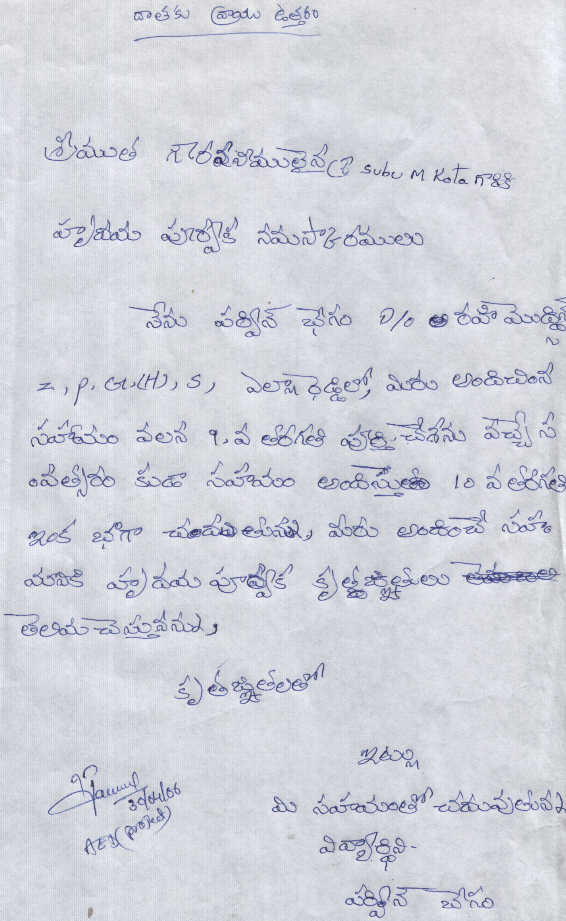 దాతకు వ్రాయు ఉత్తరం
శ్రీయుత గౌరవనీయులైన శ్రీ Subu M Kota గారికి
హృదయ పూర్వక నమస్కారములు
నేను పర్వీన్ బేగం D/o రహిమొద్దిన్
Z, P, G.(H), S, ఎల్లారెడ్డిలో, మీరు అందించిన
సహాయం వలన 9, వ తరగతి పూర్తి చేశను వచ్చే స
ంవత్సరం కుడా సహయం అందిస్తుతె 10 వ తరగతి
ఇంక భాగా చందువుతున్ను, మీరు అందించే సహ
యనికి హృదయ పూర్వక కృతజ్ఞతలు
తెలియచెస్తునాను,
కృతజ్ఞతలతో
ఇట్లు
మి సహయంతో చదువుతున్న
విద్యార్థిని-
పర్వీన్ బేగం
30/04/06
AEX(project)